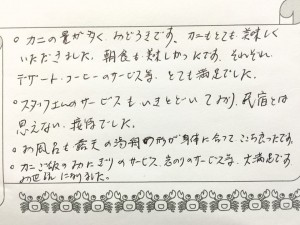 ○ カニの量が多く、おどろきです、カニもとても美味しく
いただきました。朝食も美味しかったです、それぞれ
デザート・コーヒーのサービス等、とても満足でした。
○ スタッフさんのサービスもいきとどいており、民宿とは
思えない、接待でした。
○ お風呂も露天の湯舟の形が身体に合って、ここち良かったです。
○ カニご飯のおにぎりのサービス、のサービス等、大満足です
お世話になりました。